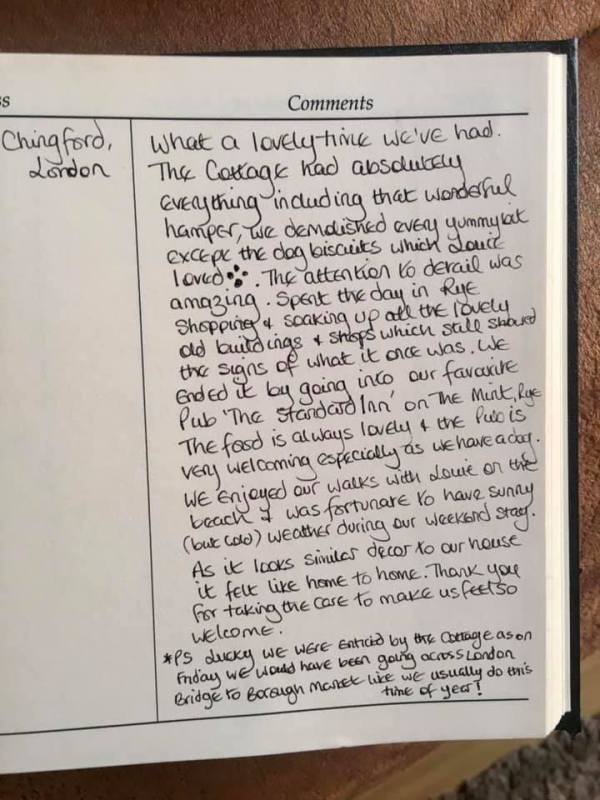 ss
Comments
Chingford,
London
What a lovely time we've had.
The Cottage had absolutely
everything including that wonderful
hamper, we demolished every yummy bit
except the dog biscuits which Louie
loved. The attention to detail was
amazing. Spent the day in Rye
Shopping & soaking up all the lovely
old buildings & shops which still showed
the signs of what it once was. We
Ended it by going into our favourite
Pub 'The Standard Inn' on The Mint, Rye
The food is always lovely & the Pub is
very welcoming especially as we have a dog.
We Enjoyed our walks with Louie on the
beach & was fortunate to have sunny
(but cold) weather during our weekend stay.
As it looks similar decor to our house
it felt like home to home. Thank you
for taking the care to make us feel so
welcome.
*PS Lucky we were enticed by the Cottage as on
Friday we would have been going across London
Bridge to Borough Market like we usually do this
time of year!